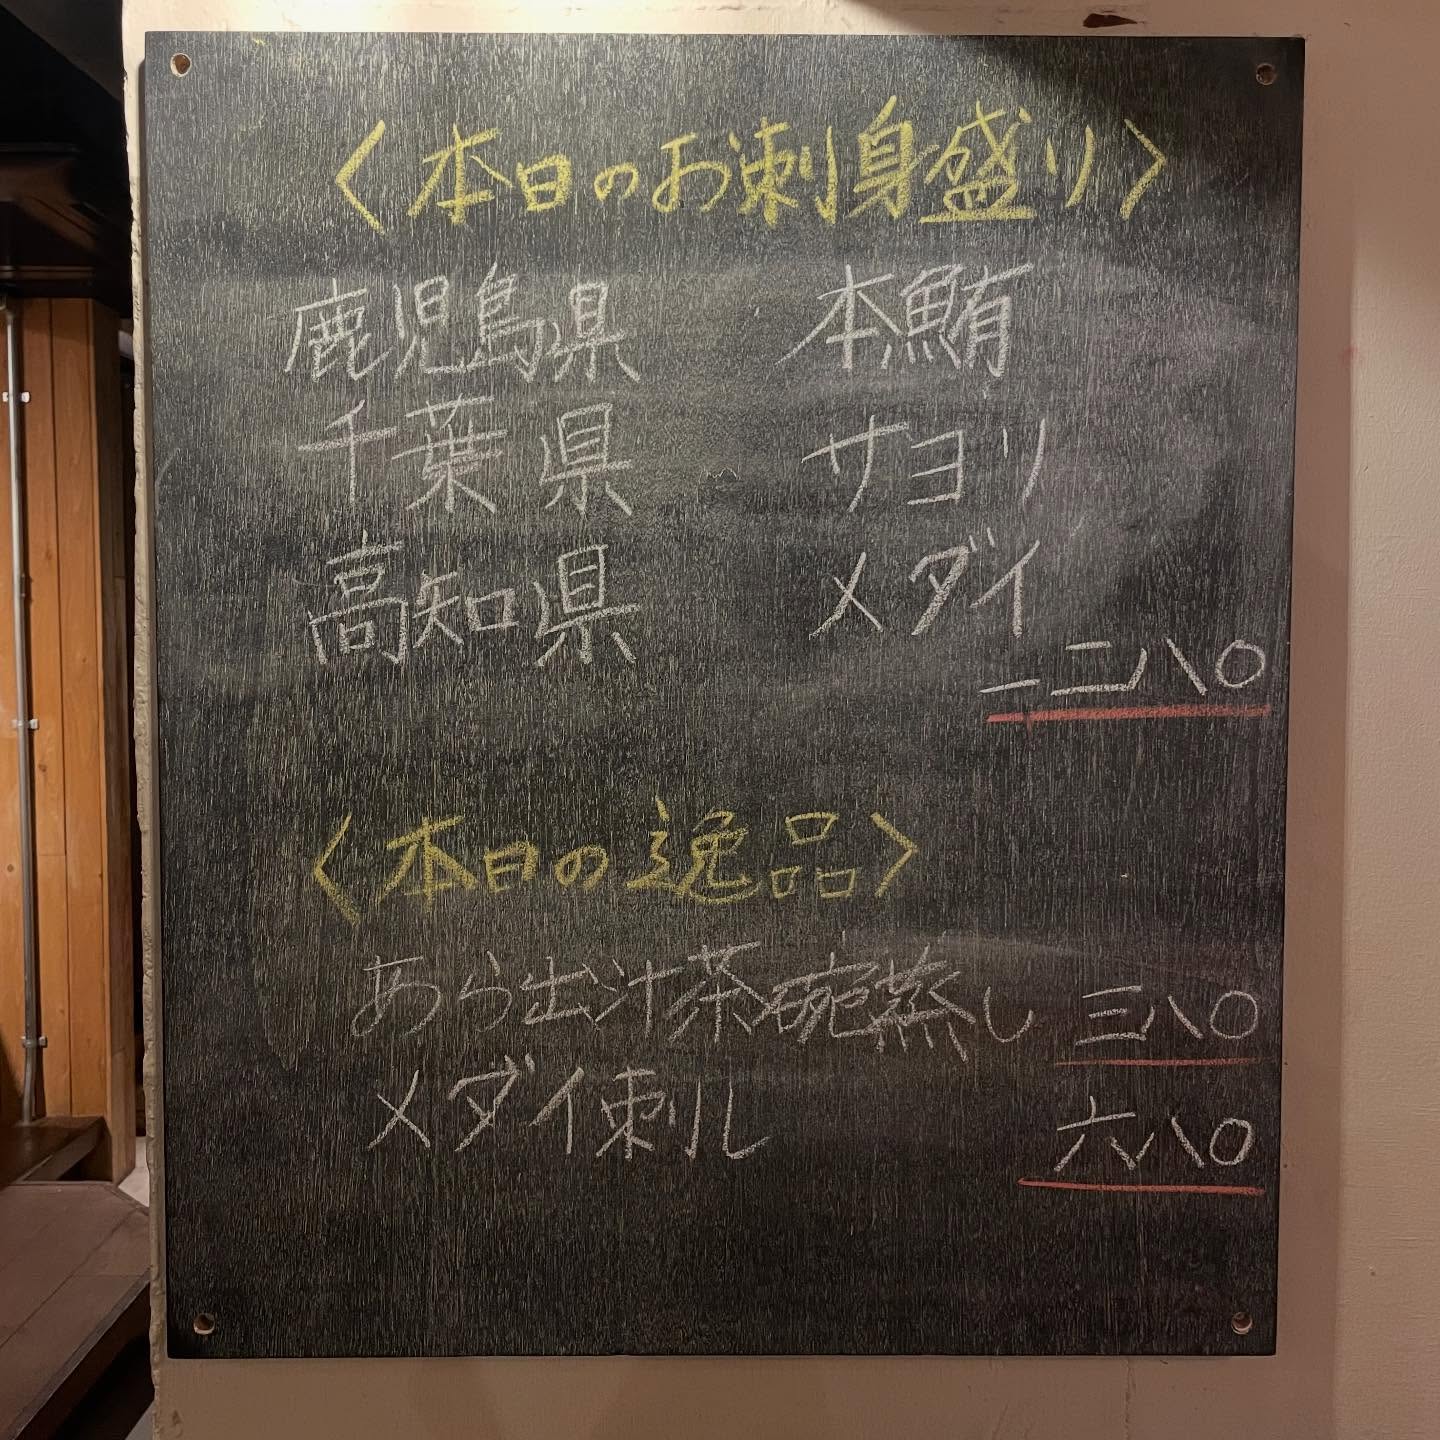 〈本日のお刺身盛り〉
鹿児島県 本鮪
千葉県 サヨリ
高知県 メダイ
一二八〇
〈本日の逸品〉
あら出汁茶碗蒸し 三八〇
メダイ刺し 六八〇